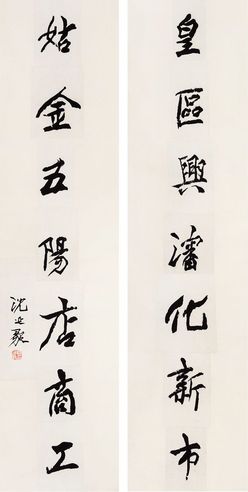 皇區興瀋化新市
姑金五陽店商工
沈延毅